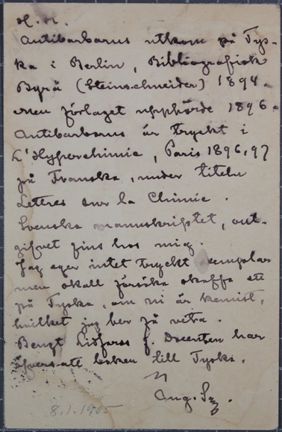 H. H.
Antibarbarus utkom på Tys-
ka i Berlin, Bibliografisk
Byrå (Steinschneider) 1894.
men förlaget upphörde 1896.
Antibarbarus är tryckt i
L'Hyperchimie, Paris 1896, 97
på Franska, under titeln
Lettres sur la Chimie.
Svenska manuskriptet, out-
gifvet fins hos mig.
Jag eger intet tryckt exemplar
men skall försöka skaffa ett
på Tyska, om ni är kemist,
hvilket jag ber få veta.
Bengt Lidforss f. Docenten har
öfversatt boken till Tyska.
Aug. Sg.
8.1.1905